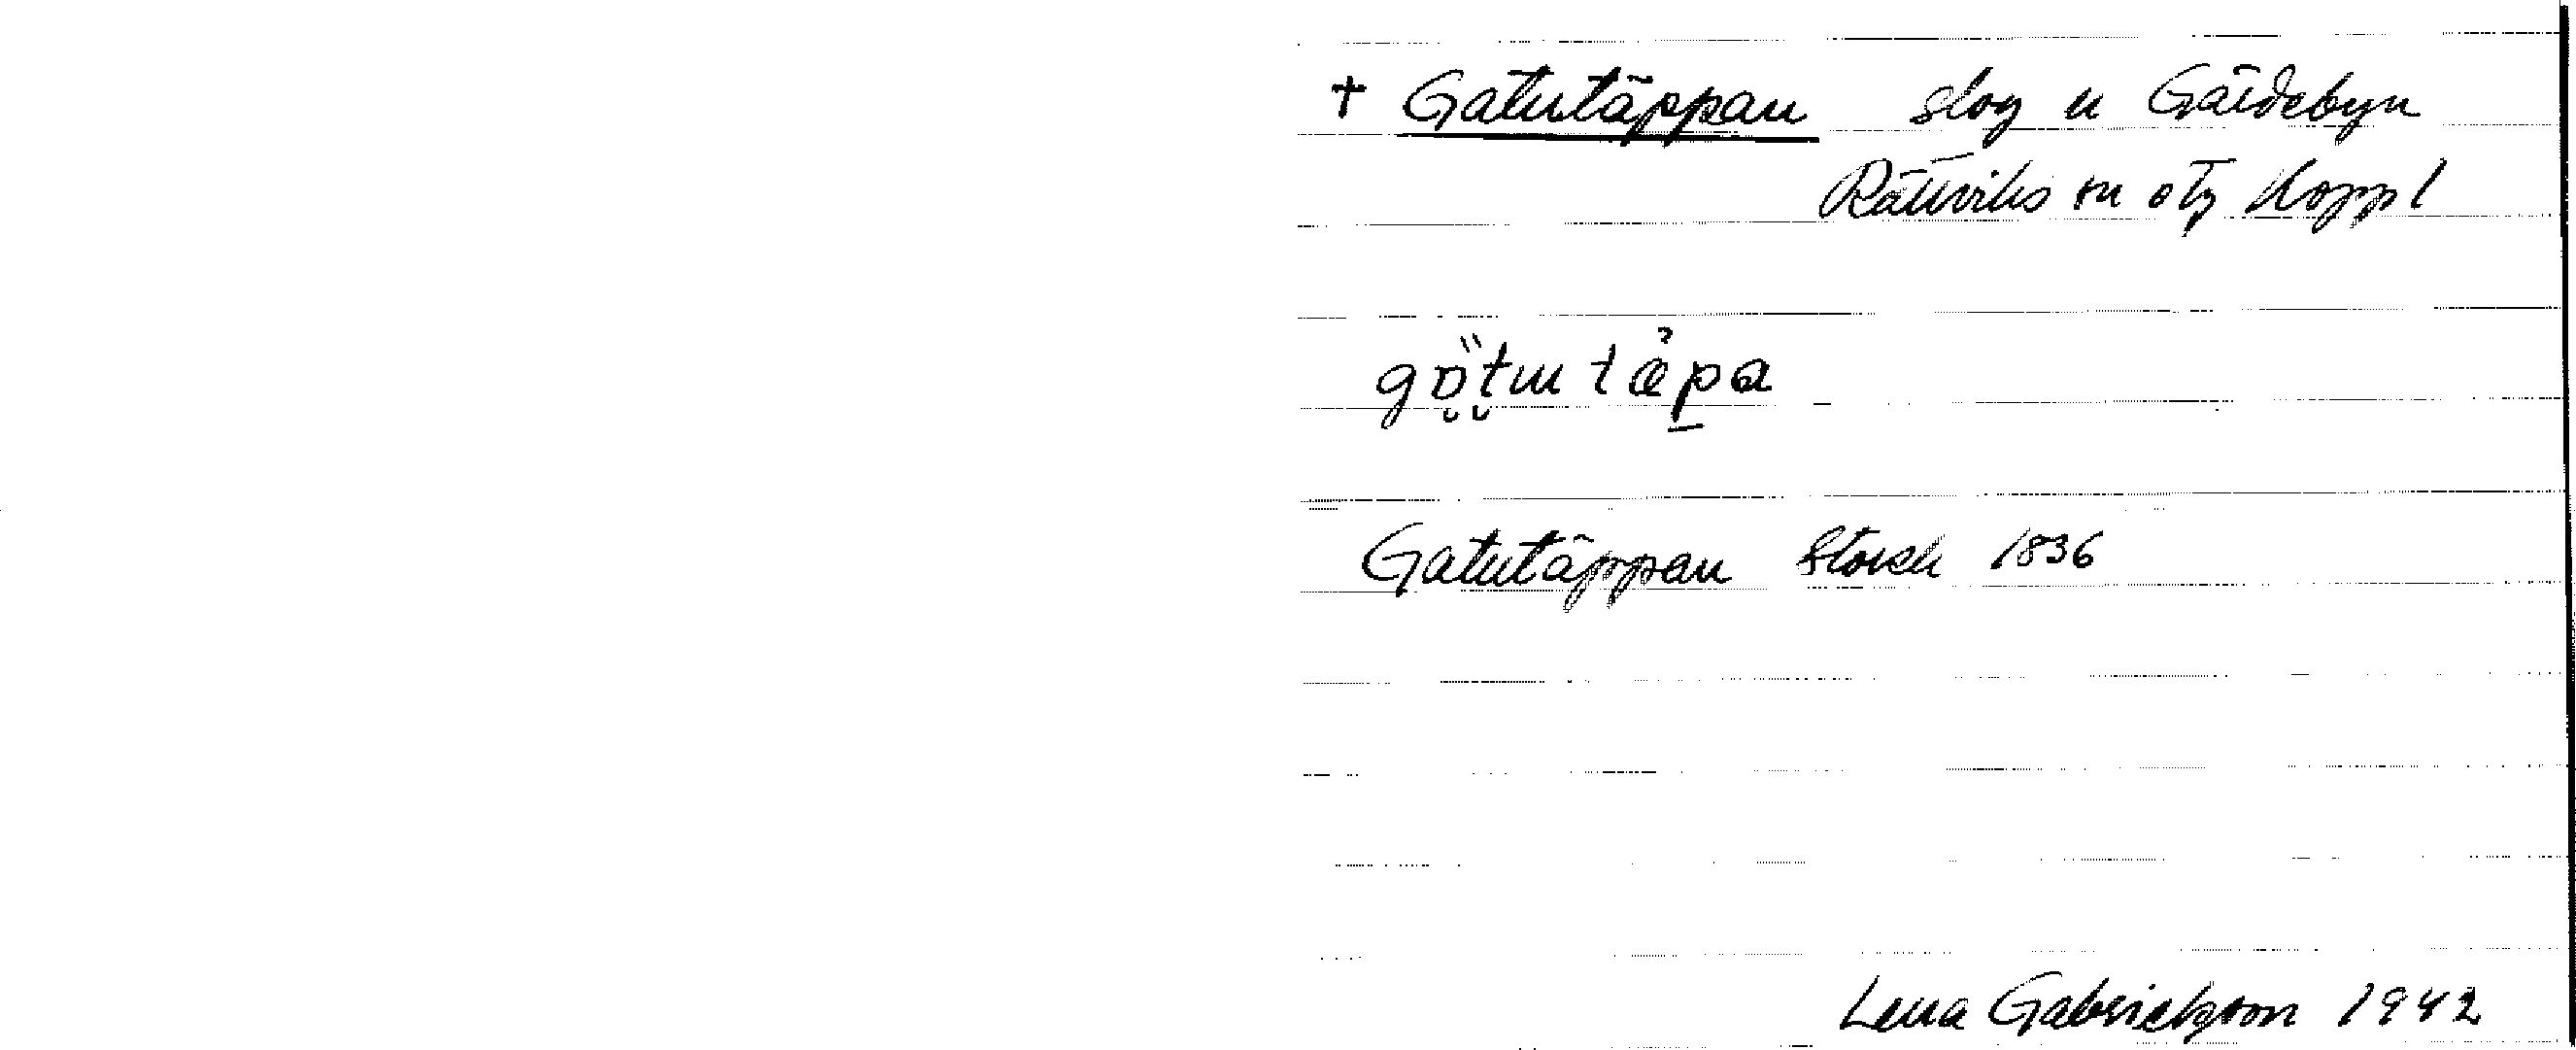 + Gatutäppan slog u Gärdebyn
Rättviks sn Kopp l
Gatutäppan Storsk 1836
Lena Gabrielsson 1942